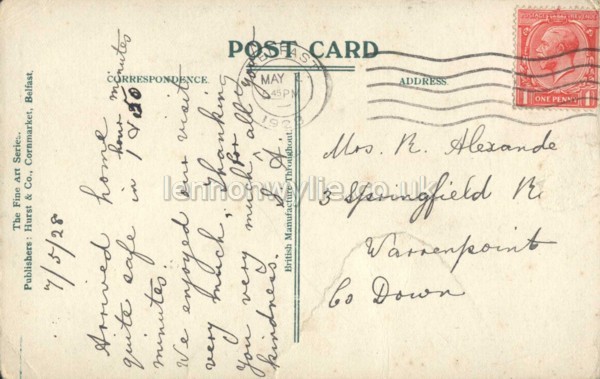 POST CARD
CORRESPONDENCE.
ADDRESS.
BELFAST
MAY
.45PM
POSTAGE REVENUE
ONE PENNY
The Fine Art Series.
Publishers: Hurst & Co., Cornmarket, Belfast.
7/5/28
Arrived home
quite safe in 1 hour & 50 minutes
minutes.
We enjoyed our visit
very much, Thanking
you very much for all your
kindness.
British Manufacture Throughout.
Mrs. R. Alexande
3 Springfield R
Warrenpoint
Co Down
lennonwylie.co.uk